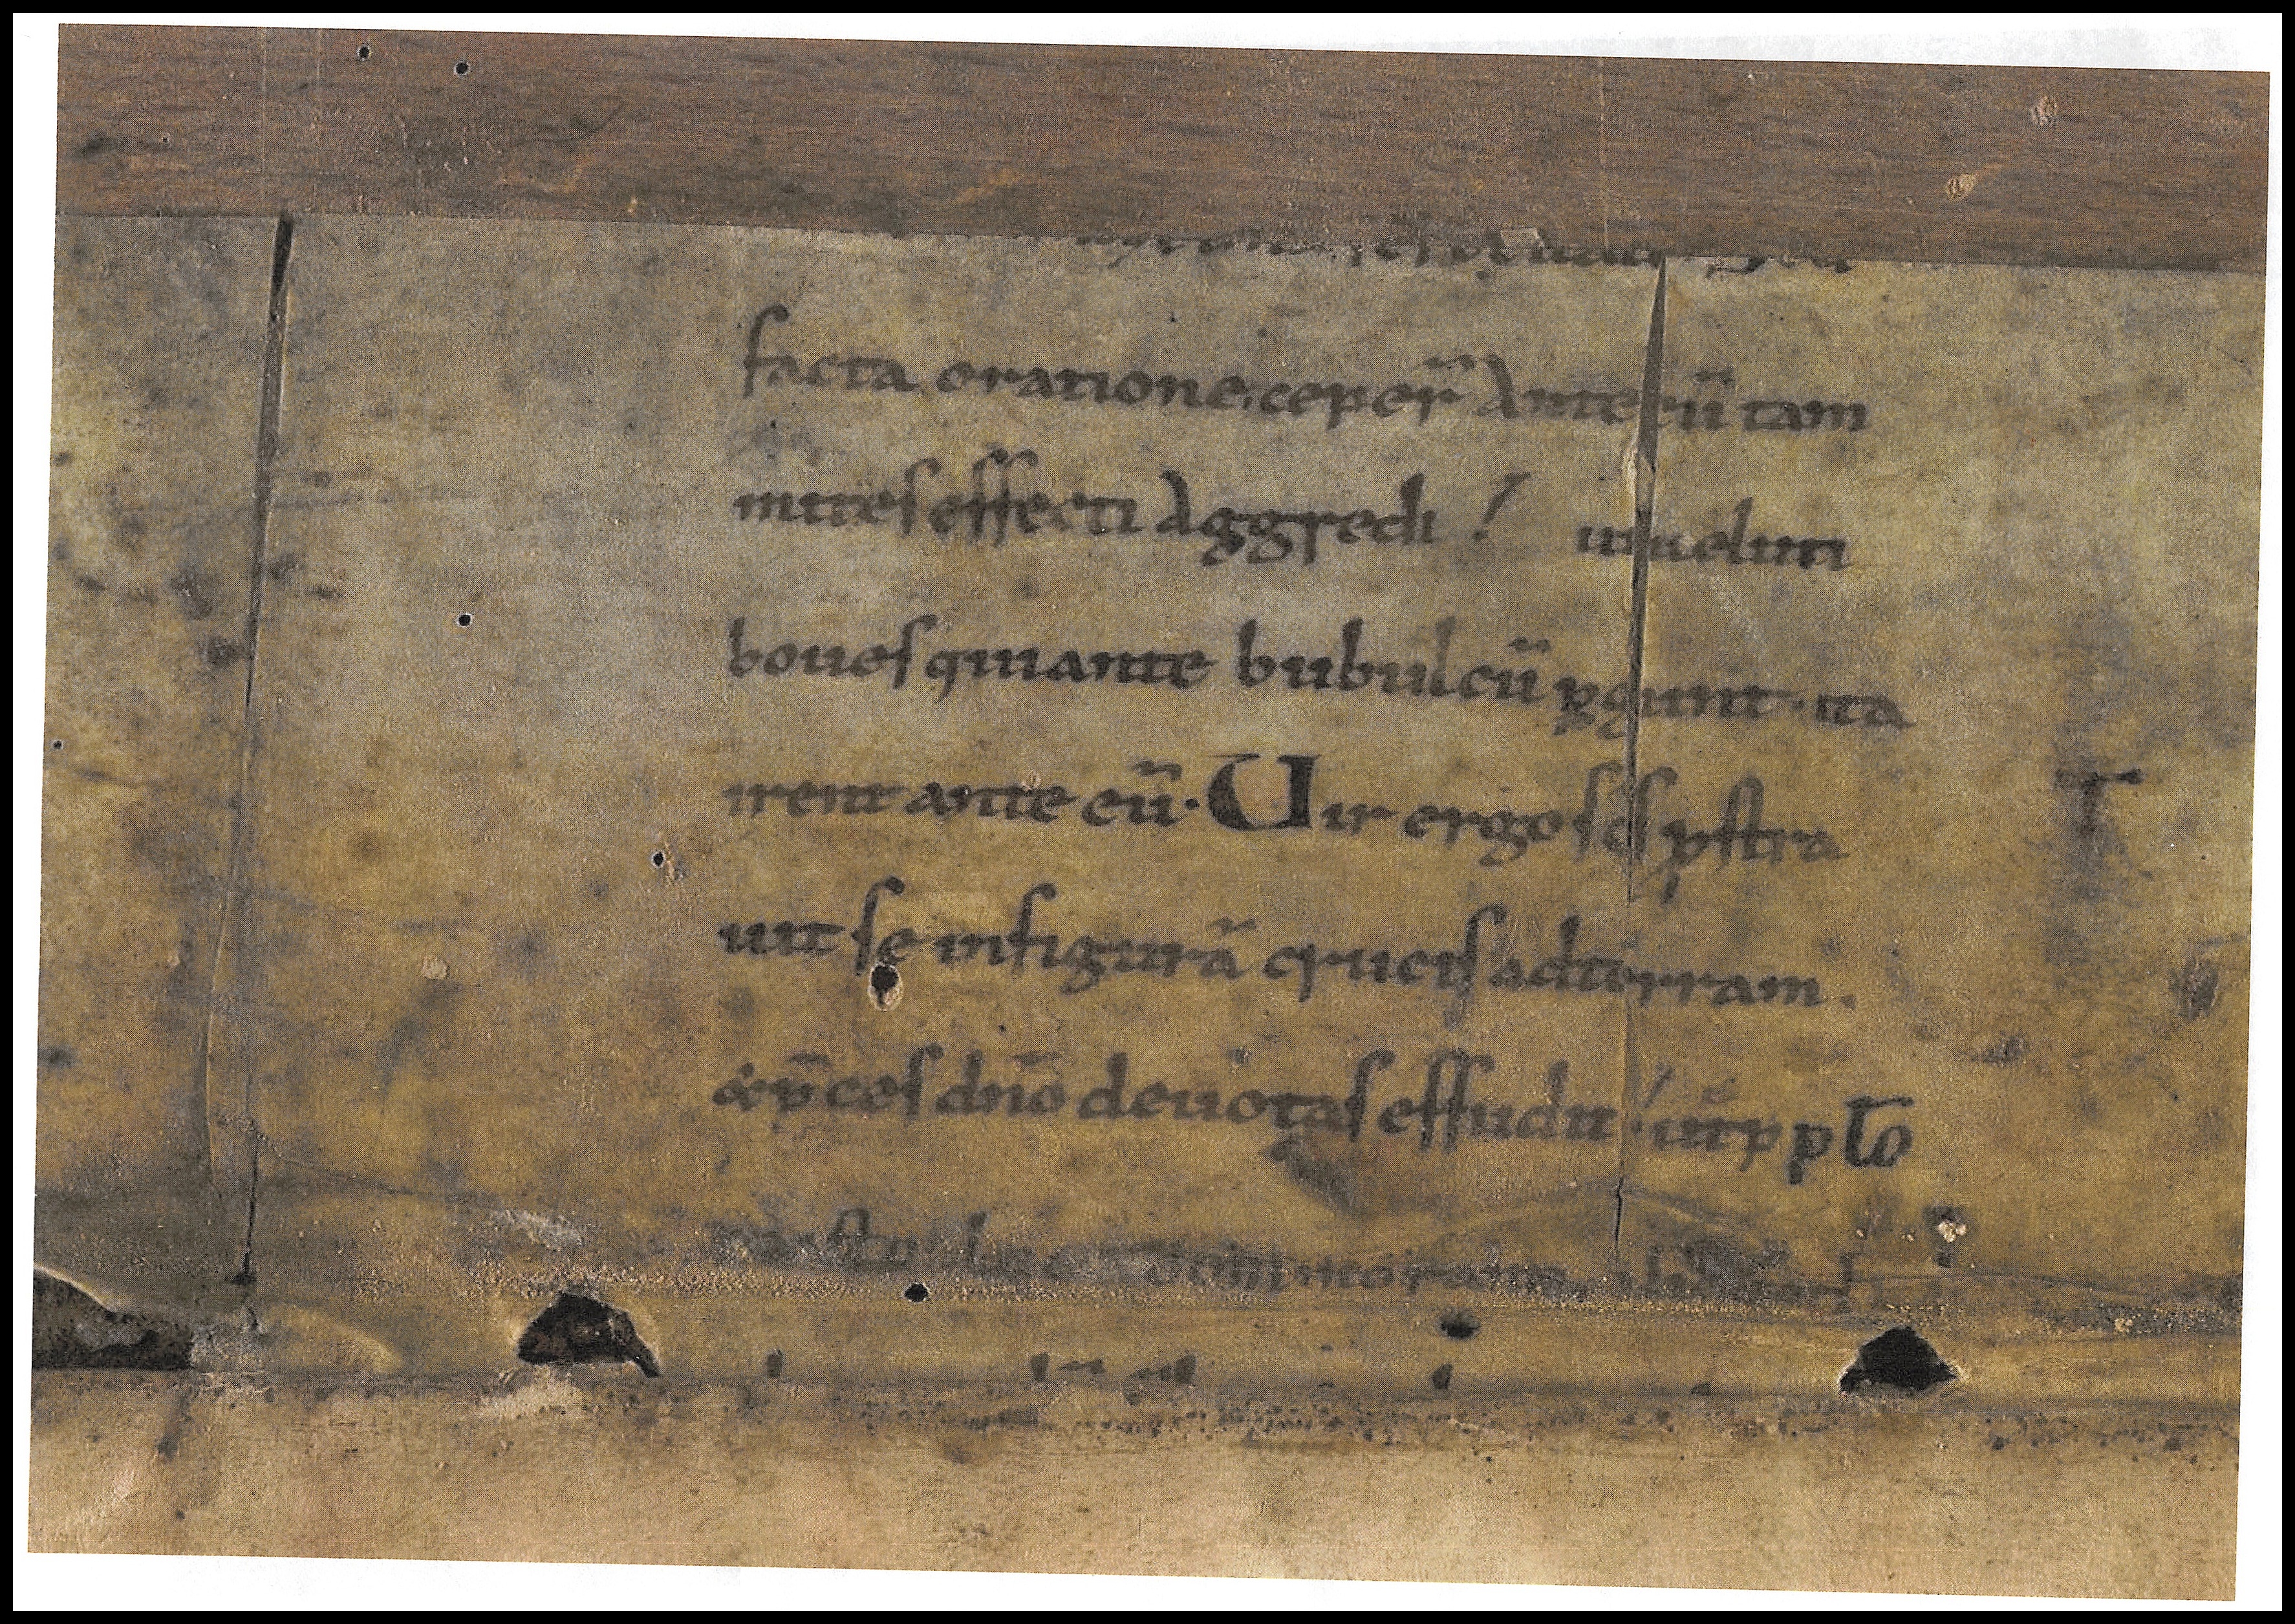 facta oratione. ceper̄ ante eū tam
mites effecti aggredi ! ut ueluti
boues qui ante bubulcū ꝑgunt · ita
irent ante eū · Uir ergo sc̄s ꝓstra
uit se infigurā crucis adterram .
& p̄ces dn̄o deuotas effudit ! ut ꝓ pło